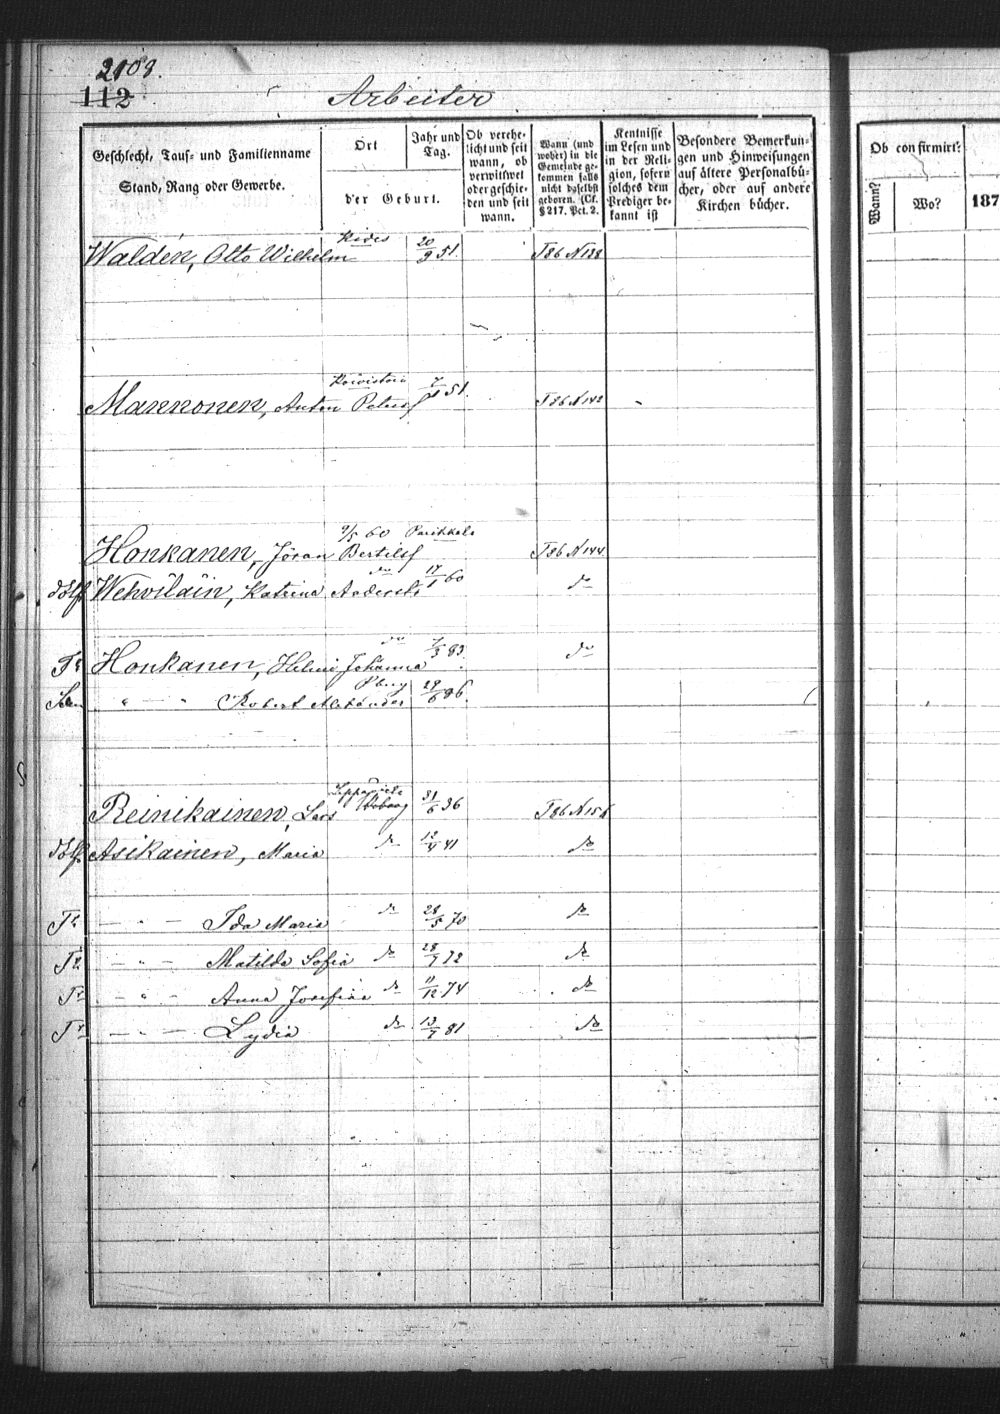 2103.
112
Arbeiter
Geschlecht, Tauf- und Familienname
Stand, Rang oder Gewerbe.
Ort
Jahr und Tag.
der Geburt.
Ob verehe-
licht und seit
wann, ob
verwittwet
oder geschie-
den und seit
wann.
Wann (und
woher) in die
Gemeinde ge-
kommen falls
nicht daselbst
geboren. (Cf.
§ 217. Pct. 2.
Kentnisse
im Lesen und
in der Reli-
gion, sofern
solches dem
Prediger be-
kannt ist
Besondere Bemerkun-
gen und Hinweisungen
auf ältere Personalbü-
cher, oder auf andere
Kirchen bücher.
Ob confirmirt?
Wann?
Wo?
187
Waldén, Otto Wilhelm Kides 20/9 51. T86 N138
Mannonen, Anton Petersf Koivisto 51. T86 N142
Honkanen, Jöran Bertilsf 9/5 60 Parikkala T86 N144
Wehviläin, Katrina do 17/1 60 do
Tr Honkanen, Helmi Johanna do 83. do
" — " Robert Alexander Pburg 29/6 86.
Reinikainen, Lars Wiborg 31/6 36 T86 N15
Asikainen, Maria do 12 41 do
Tr — " — Ida Maria do 28/5 70 do
Tr — " — Matilda Sofia do 28/7 72 do
Tr — " — Anna Josefina do 11/12 74 do
Tr — " — Lydia do 13/7 81 do